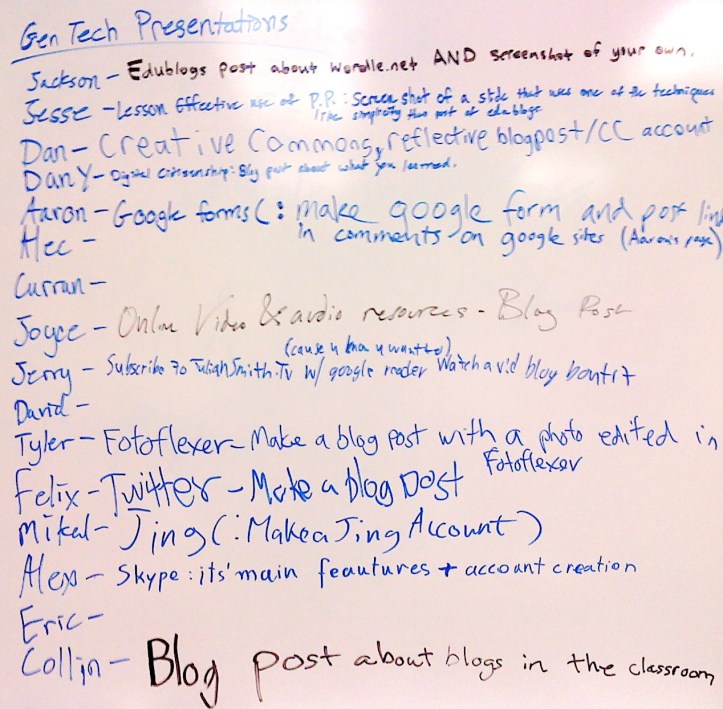 Gen Tech Presentations
Jackson - Edublogs post about wordle.net AND screenshot of your own.
Jesse - Lesson Effective use of P.P.: Screen shot of a slide that uses one of the techniques
like simplicity then post at edublogs
Dan - Creative Commons, reflective blogpost/CC account
Dany - Digital Citizenship: Blog post about what you learned.
Aaron - Google forms (: make google form and post link
in comments on google sites (Aaron's page)
Alec -
Curran -
Joyce - Online Video & audio resources - Blog Post
(cause u know u want to)
Jerry - Subscribe to JulianSmith.Tv w/ google reader Watch a vid blog bout it
David -
Tyler - Fotoflexer - Make a blog post with a photo edited in
Fotoflexer
Felix - Twitter - Make a blog post
Mikal - Jing (: Make a Jing Account)
Alex - Skype: its' main feautures + account creation
Eric -
Collin - Blog post about blogs in the classroom